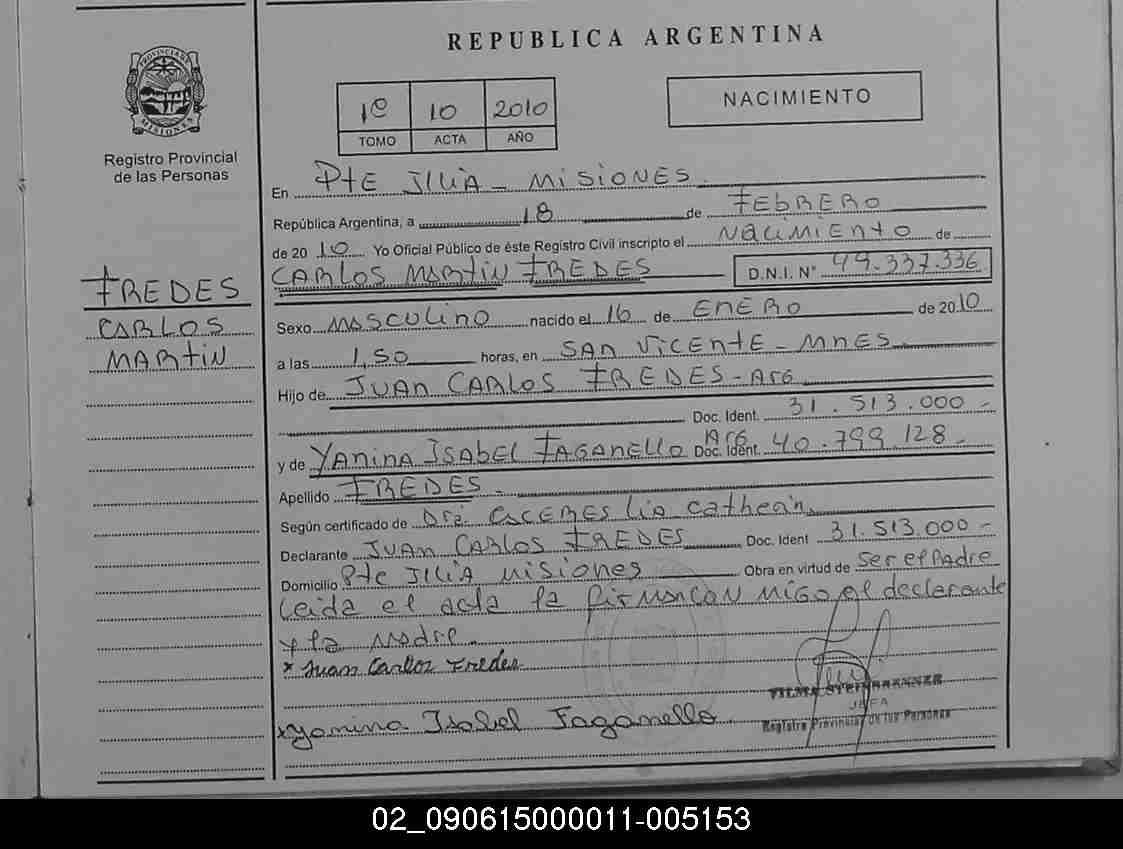 REPUBLICA ARGENTINA
PROVINCIA DE MISIONES
Registro Provincial
de las Personas
1º 10 2010
TOMO ACTA AÑO
NACIMIENTO
En Pte ILLIA - MISIONES
República Argentina, a 18 de FEBRERO
de 2010 Yo Oficial Público de éste Registro Civil inscripto el NACIMIENTO de
CARLOS MARTIN FREDES D.N.I. Nº 49.337.336
FREDES
CARLOS
MARTIN
Sexo MASCULINO nacido el 16 de ENERO de 2010
a las 1,50 horas, en SAN VICENTE - MNES.
Hijo de JUAN CARLOS FREDES - ARG
Doc. Ident. 31.513.000 -
y de YANINA ISABEL FAGANELLO ARG Doc. Ident. 40.799.128 -
Apellido FREDES -
Según certificado de Dra. Lia
Declarante JUAN CARLOS FREDES Doc. Ident 31.513.000 -
Domicilio Pte ILLIA MISIONES Obra en virtud de Ser el Padre
Leida el acta la firman con migo el declarante
y la Madre.
* Juan Carlos Fredes
VILMA STEINBRENNER
JEFA
Registro Provincial de las Personas
x Yanina Isabel Faganello
02_090615000011-005153